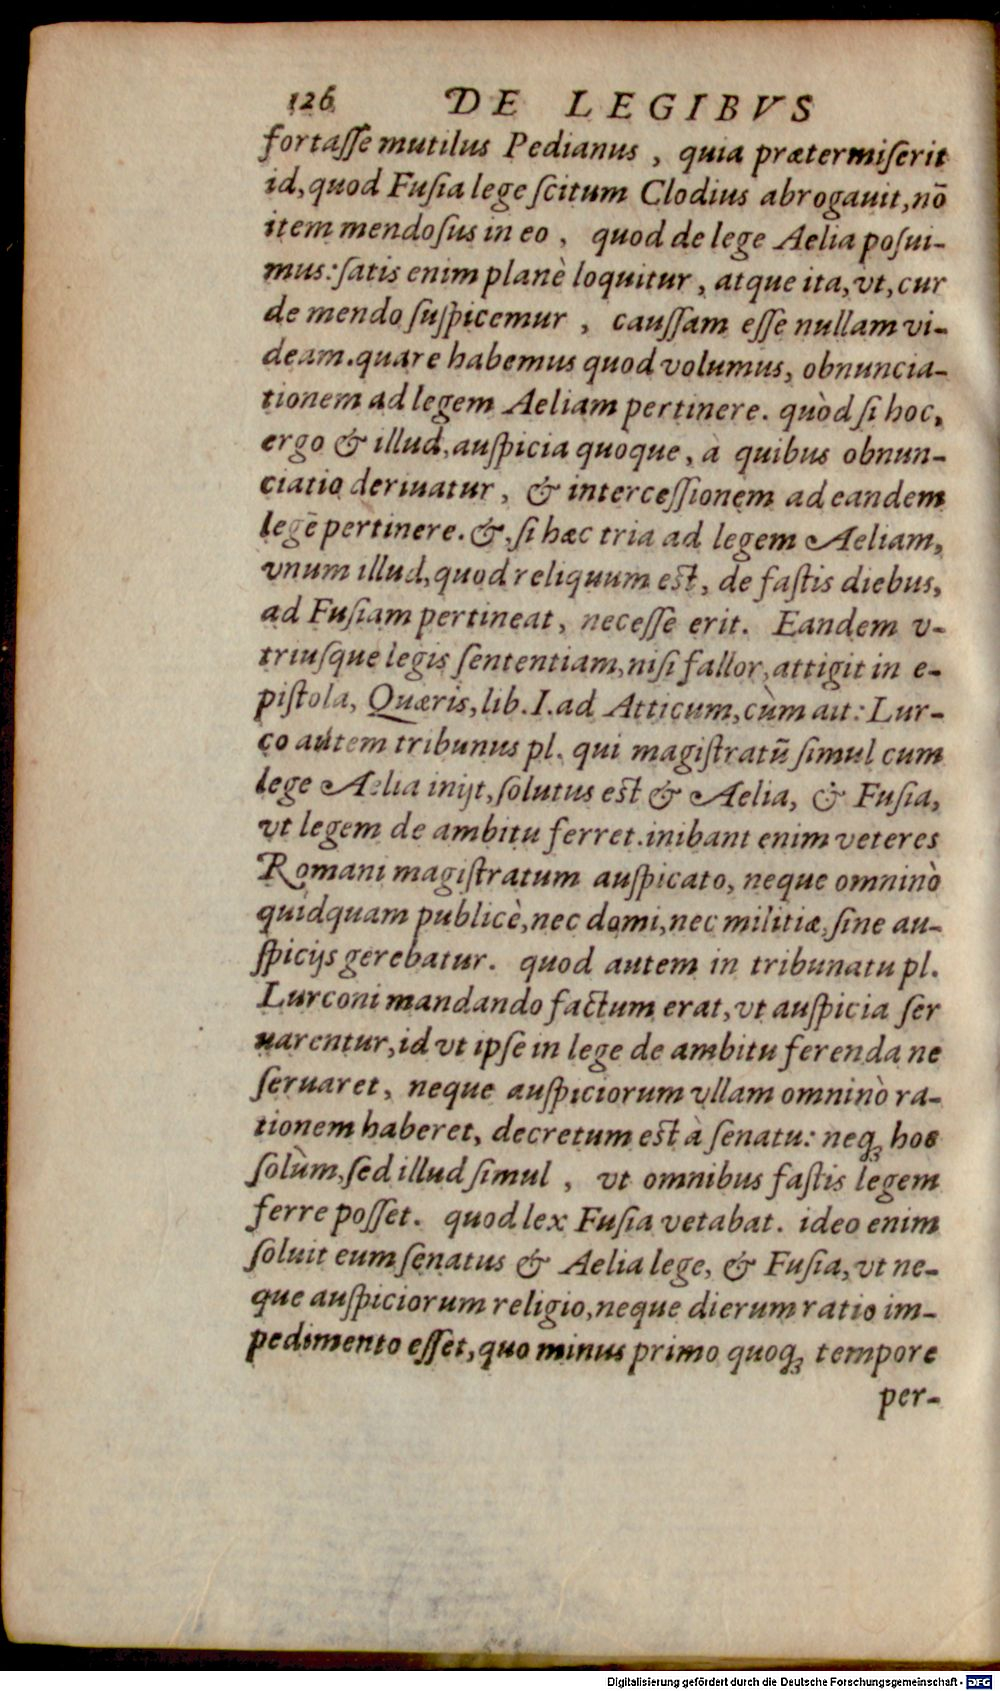 126 DE LEGIBVS
fortaſſe mutilus Pedianus, quia prætermiſerit
id, quod Fuſia lege ſcitum Clodius abrogauit, nō
item mendoſus in eo, quod de lege Aelia poſui-
mus: ſatis enim planè loquitur, atque ita, vt, cur
de mendo ſuſpicemur, cauſſam eſſe nullam vi-
deam. quare habemus quod volumus, obnuncia-
tionem ad legem Aeliam pertinere. quòd ſi hoc,
ergo & illud, auſpicia quoque, à quibus obnun-
ciatio deriuatur, & interceſſionem ad eandem
legē pertinere. &, ſi hæc tria ad legem Aeliam,
vnum illud, quod reliquum eſt, de faſtis diebus,
ad Fuſiam pertineat, neceſſe erit. Eandem v-
triuſque legis ſententiam, niſi fallor, attigit in e-
piſtola, Quæris, lib. I. ad Atticum, cùm ait: Lur-
co autem tribunus pl. qui magiſtratū ſimul cum
lege Aelia inijt, ſolutus eſt & Aelia, & Fuſia,
vt legem de ambitu ferret. inibant enim veteres
Romani magiſtratum auſpicato, neque omninò
quidquam publicè, nec domi, nec militiæ, ſine au-
ſpicijs gerebatur. quod autem in tribunatu pl.
Lurconi mandando factum erat, vt auſpicia ſer
uarentur, id vt ipſe in lege de ambitu ferenda ne
ſeruaret, neque auſpiciorum vllam omninò ra-
tionem haberet, decretum eſt à ſenatu: neqꝫ hoc
ſolùm, ſed illud ſimul, vt omnibus faſtis legem
ferre poſſet. quod lex Fuſia vetabat. ideo enim
ſoluit eum ſenatus & Aelia lege, & Fuſia, vt ne-
que auſpiciorum religio, neque dierum ratio im-
pedimento eſſet, quo minus primo quoqꝫ tempore
per-
Digitalisierung gefördert durch die Deutsche Forschungsgemeinschaft - DFG